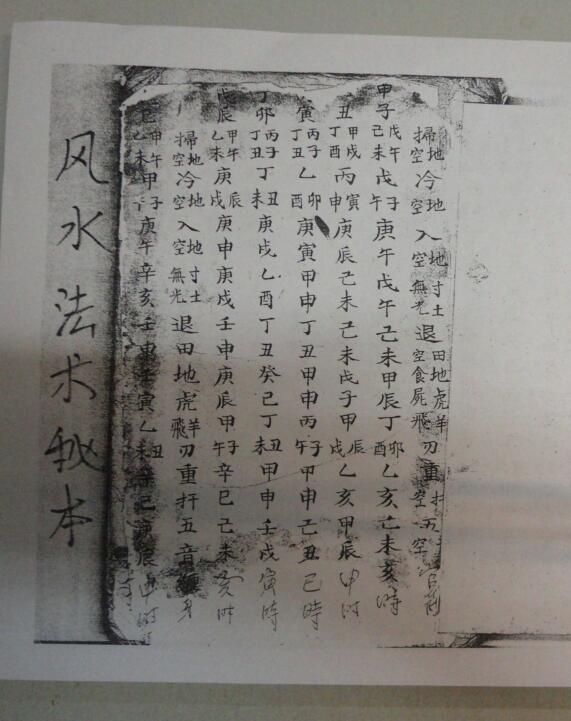 掃地空冷地空入地空寸土無光退田地空虎羊食屍飛刃重扦空五空
甲子戊午己未戊子午庚午戊午己未甲辰丁卯酉乙亥己未亥時
丑甲戌丁酉丙寅申庚辰己未己未戊子甲辰戌乙亥甲辰申时
寅丙子丁丑乙卯酉庚寅甲申丁丑甲申丙子午甲申己丑巳時
丁卯丙子丁丑丁丑未庚戌乙酉丁丑癸巳丁丑未甲申壬戌寅時
戊辰甲午乙未庚辰戌庚申庚戌壬申庚辰甲子午辛巳己未亥时
掃地空冷地空入地空寸土無光退田地虎羊飛刃重扦五音
巳甲午乙未甲子庚午辛亥壬申壬寅乙丑未辛巳庚辰申时
风水法术秘本